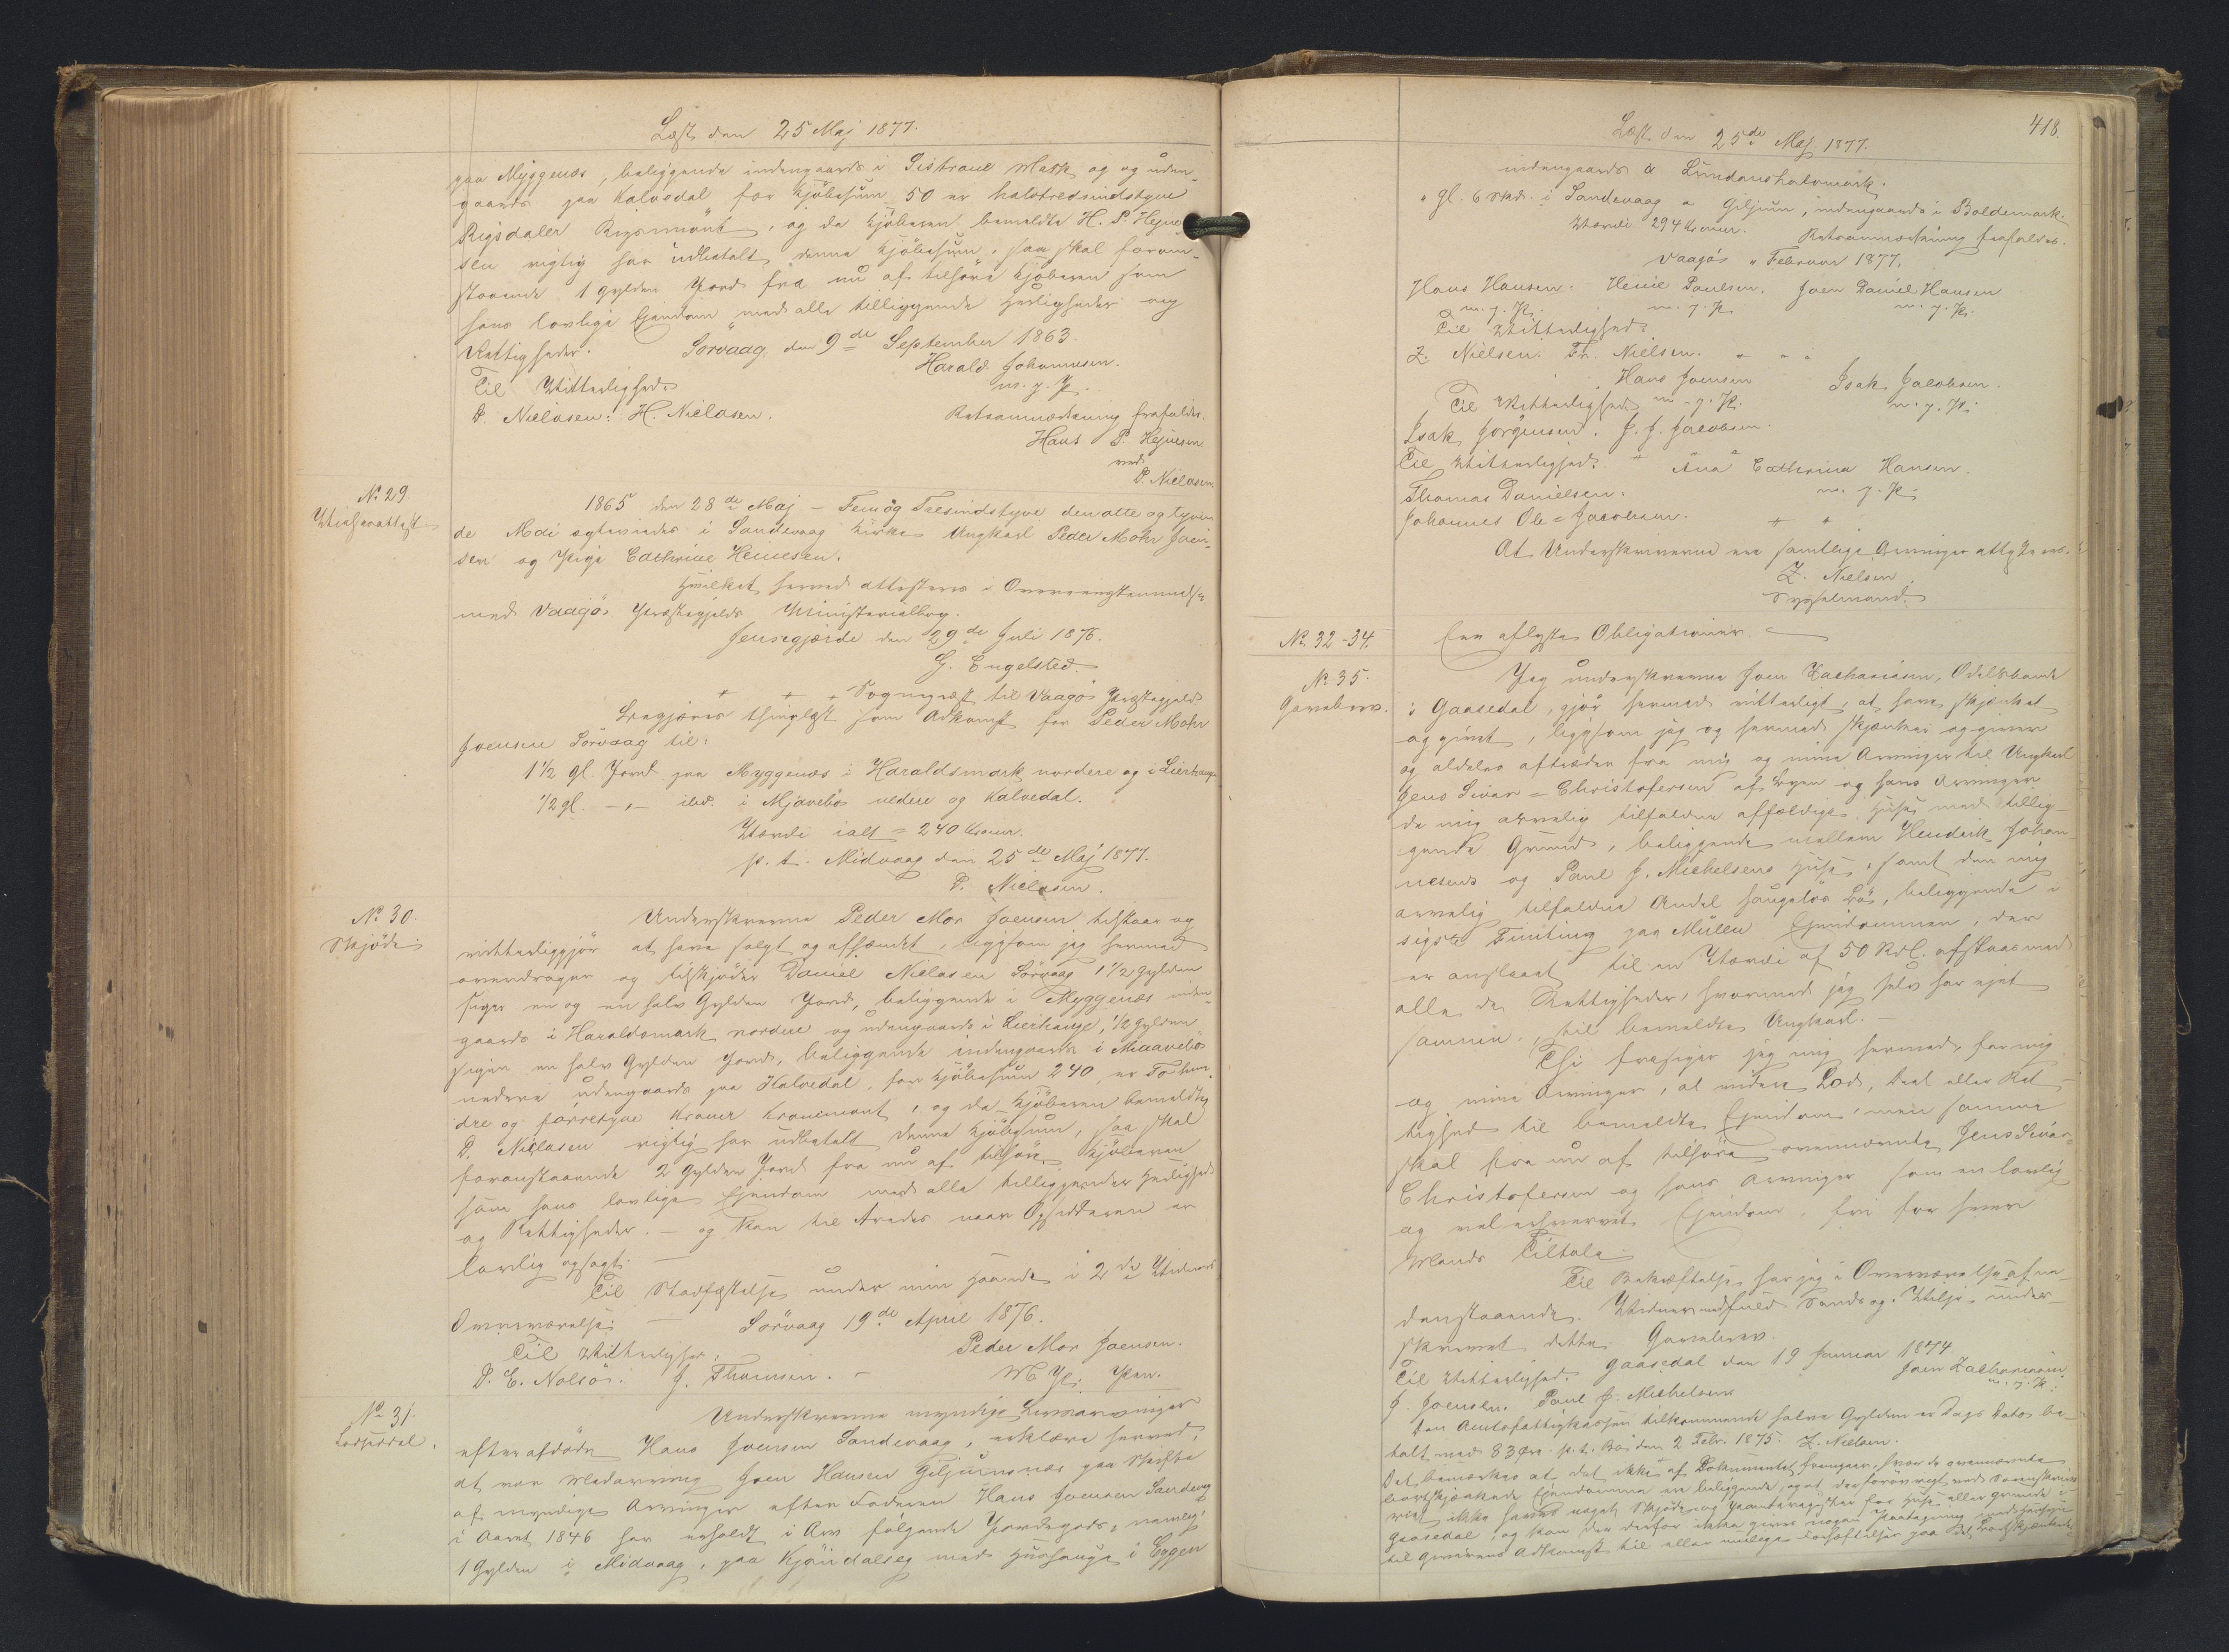 Læst den 25 Maj 1877.
paa Myggenæs, beliggende indengaards i Sistrane Mark og og uden-
gaards paa Kalvedal for Kjøbesum 50 er halvtredsindstyve
Rigsdaler Rigsmønt, og da Kjøberen bemeldte H. P. Hejne-
sen rigtig har udbetalt denne Kjøbesum, saa skal foran-
staaende 1 Gylden Jord fra nu af tilhøre Kjøberen som
hans lovlige Ejendom med alle tilliggende Herligheder og
Rettigheder. Sørvaag, den 9de September 1863.
Harald Johannesen.
Til Vitterlighed m. f. P.
D. Niclasen. H. Niclasen. Retsanmærkning frafaldes.
Hans P. Hejnesen
ved
D. Niclasen
No 29.
Vielsesattest
1865 den 28de Maj – Fem og Tresindstyve den otte og tyven
de Mai ægteviedes i Sandevaag Kirke Ungkarl Peder Mohr Joen-
sen og Pige Cathrine Heinesen.
Hvilket herved attesteres i Overensstemmelse
med Vaagøs Præstegjelds Ministerialbog.
Jensagjærde den 29de Juli 1876.
G. Engelsted
Sognepræst til Vaagøs Præstegjeld
Begjæres thinglæst som Adkomst for Peder Mohr
Joensen Sørvaag til:
1 1/2 gl. Jord paa Myggenæs i Haraldsmark nordere og i Lierhauge
1/2 gl. –„– ibd. i Mjavebø nedere og Kalvedal.
Værdi ialt = 240 Kroner.
p. t. Midvaag den 25de Maj 1877.
D. Niclasen.
No 30.
Skjøde
Underskrevne Peder Mor Joensen tilstaar og
vitterliggjør at have solgt og afhændet, ligesom jeg hermed
overdrager og tilskjøder Daniel Niclasen Sørvaag 1 1/2 Gylden
siger en og en halv Gylden Jord, beliggende i Myggenæs inden-
gaards i Haraldsmark nordere og udengaards i Lierhauge, 1/2 Gylden
siger en halv Gylden Jord, beliggende indengaards i Miaavebø
nedere udengaards paa Kalvedal, for Kjøbesum 240, er Tohun-
dre og førretyve Kroner Kronemønt, og da Kjøberen bemeldte
D. Niclasen rigtig har udbetalt denne Kjøbesum, saa skal
foranstaaende 2 Gylden Jord fra nu af tilhøre Kjøberen
som hans lovlige Ejendom med alle tilliggender Herlighed
og Rettigheder. – og kan til Trædes naar Opsidderen er
lovlig opsagt. –
Til Stadfæstelse under min Haand i 2de Vidners
Overværelse: – Sørvaag 19de April 1876.
Til Vitterlighed: Peder Mor Joensen.
D. E. Nolsøe. J. Thomsen. – M. P. Pen.
No 31.
Lodseddel.
Underskrevne myndige Livsarvinger
efter afdøde Hans Joensen Sandevaag, erklære herved
at vor Medarving Joen Hansen Giljumsnæs paa Skifte
af myndige Arvinger efter Faderen Hans Joensen Sandevaag
i Aaret 1846 har erholdt i Arv følgende Jordegods, nemlig:
1 Gylden i Midvaag, paa Kjøndalseg med Hushauge i Eygen
418.
Læst den 25de Maj 1877.
indengaards a Lundanshalvmark.
„ gl. 6 Skd. i Sandevaag a Giljum, indengaards i Boldemark.
Værdi 294 Kroner. Retsanmærkning frafaldes.
Vaagøs „ Februar 1877.
Hans Hansen. Heine Poulsen. Joen Daniel Hansen
m. f. P. m. f. P. m. f. P.
Til Vitterlighed:
Z. Nielsen. Fr. Nielsen.
Hans Joensen Isak Jacobsen.
Til Vitterlighed m. f. P. m. f. P.
Isak Jørgensen. J. J. Jacobsen.
Til Vitterlighed: Ana Cathrina Hansen.
Thomas Danielsen. m. f. P.
Johannes Ole = Jacobsen.
At Underskriverne ere samtlige Arvinger attesteres.
Z. Nielsen
Sysselmand.
No. 32-34. Ere aflyste Obligationer.
No 35.
Gavebrev.
Jeg underskrevne Joen Zachariasen, Odelsbonde
i Gaasedal, gjør hermed vitterligt, at have skjænket
og givet, ligesom jeg og hermed skjænker og giver
og aldeles afhænder fra mig og mine Arvinger til Ungkarl
Jens Sivar = Christofersen af Bygen og hans Arvinger
de mig arvelig tilfaldne affældige Huse med tillig-
gende Grund, beliggende mellem Hendrik Johan-
nesens og Poul J. Michelsens Huse, samt den mig
arvelig tilfaldne Andel saugaløs Bø, beliggende i
sigste Funting paa Mullen Ejendommen, der
er anslaaet til en Værdi af 50 Rdl. afstaaes med
alle de Rettigheder, hvormed jeg selv har ejet
samme, til bemeldte Ungkarl. –
Thi frasiger jeg mig hermed, for mig
og mine Arvinger, al videre Lod, Deel eller Ret-
tighed til bemeldte Ejendom, men samme
skal fra nu af tilhøre ovennævnte Jens Sivar =
Christofersen og hans Arvinger som en lovlig
og vel erhvervet Ejendom, fri for hver
Mands Tiltale.
Til Bekræftelse har jeg i Overværelse af ne-
denstaaende Vidner med fuld Sands og Vilje, under-
skrevet dette Gavebrev.
Gaasedal den 19 Januar 1874
Til Vitterlighed. Joen Zachariasen
J. Joensen. Poul J. Michelsen m. f. P.
Den Amtsfattigkassen tilkommende halve Gylden er Dags Dato be-
talt med 83 Øre. p. t. Bø den 2 Febr. 1875. Z. Nielsen.
Det bemærkes at det ikke af Dokumentet fremgaar, hvor de ovennævnte
bortskjænkede Ejendomme ere beliggende, og at der forøvrigt ved Sorenskriver
iet ikke haves noget Skjøde- og Panteregister for Huse eller Grunde i
Gaasedal, og kan der derfor ikke gives nogen Paategning med Hensyn
til Giverens Adkomst til eller mulige Forhæftelser paa det bortskjænkede